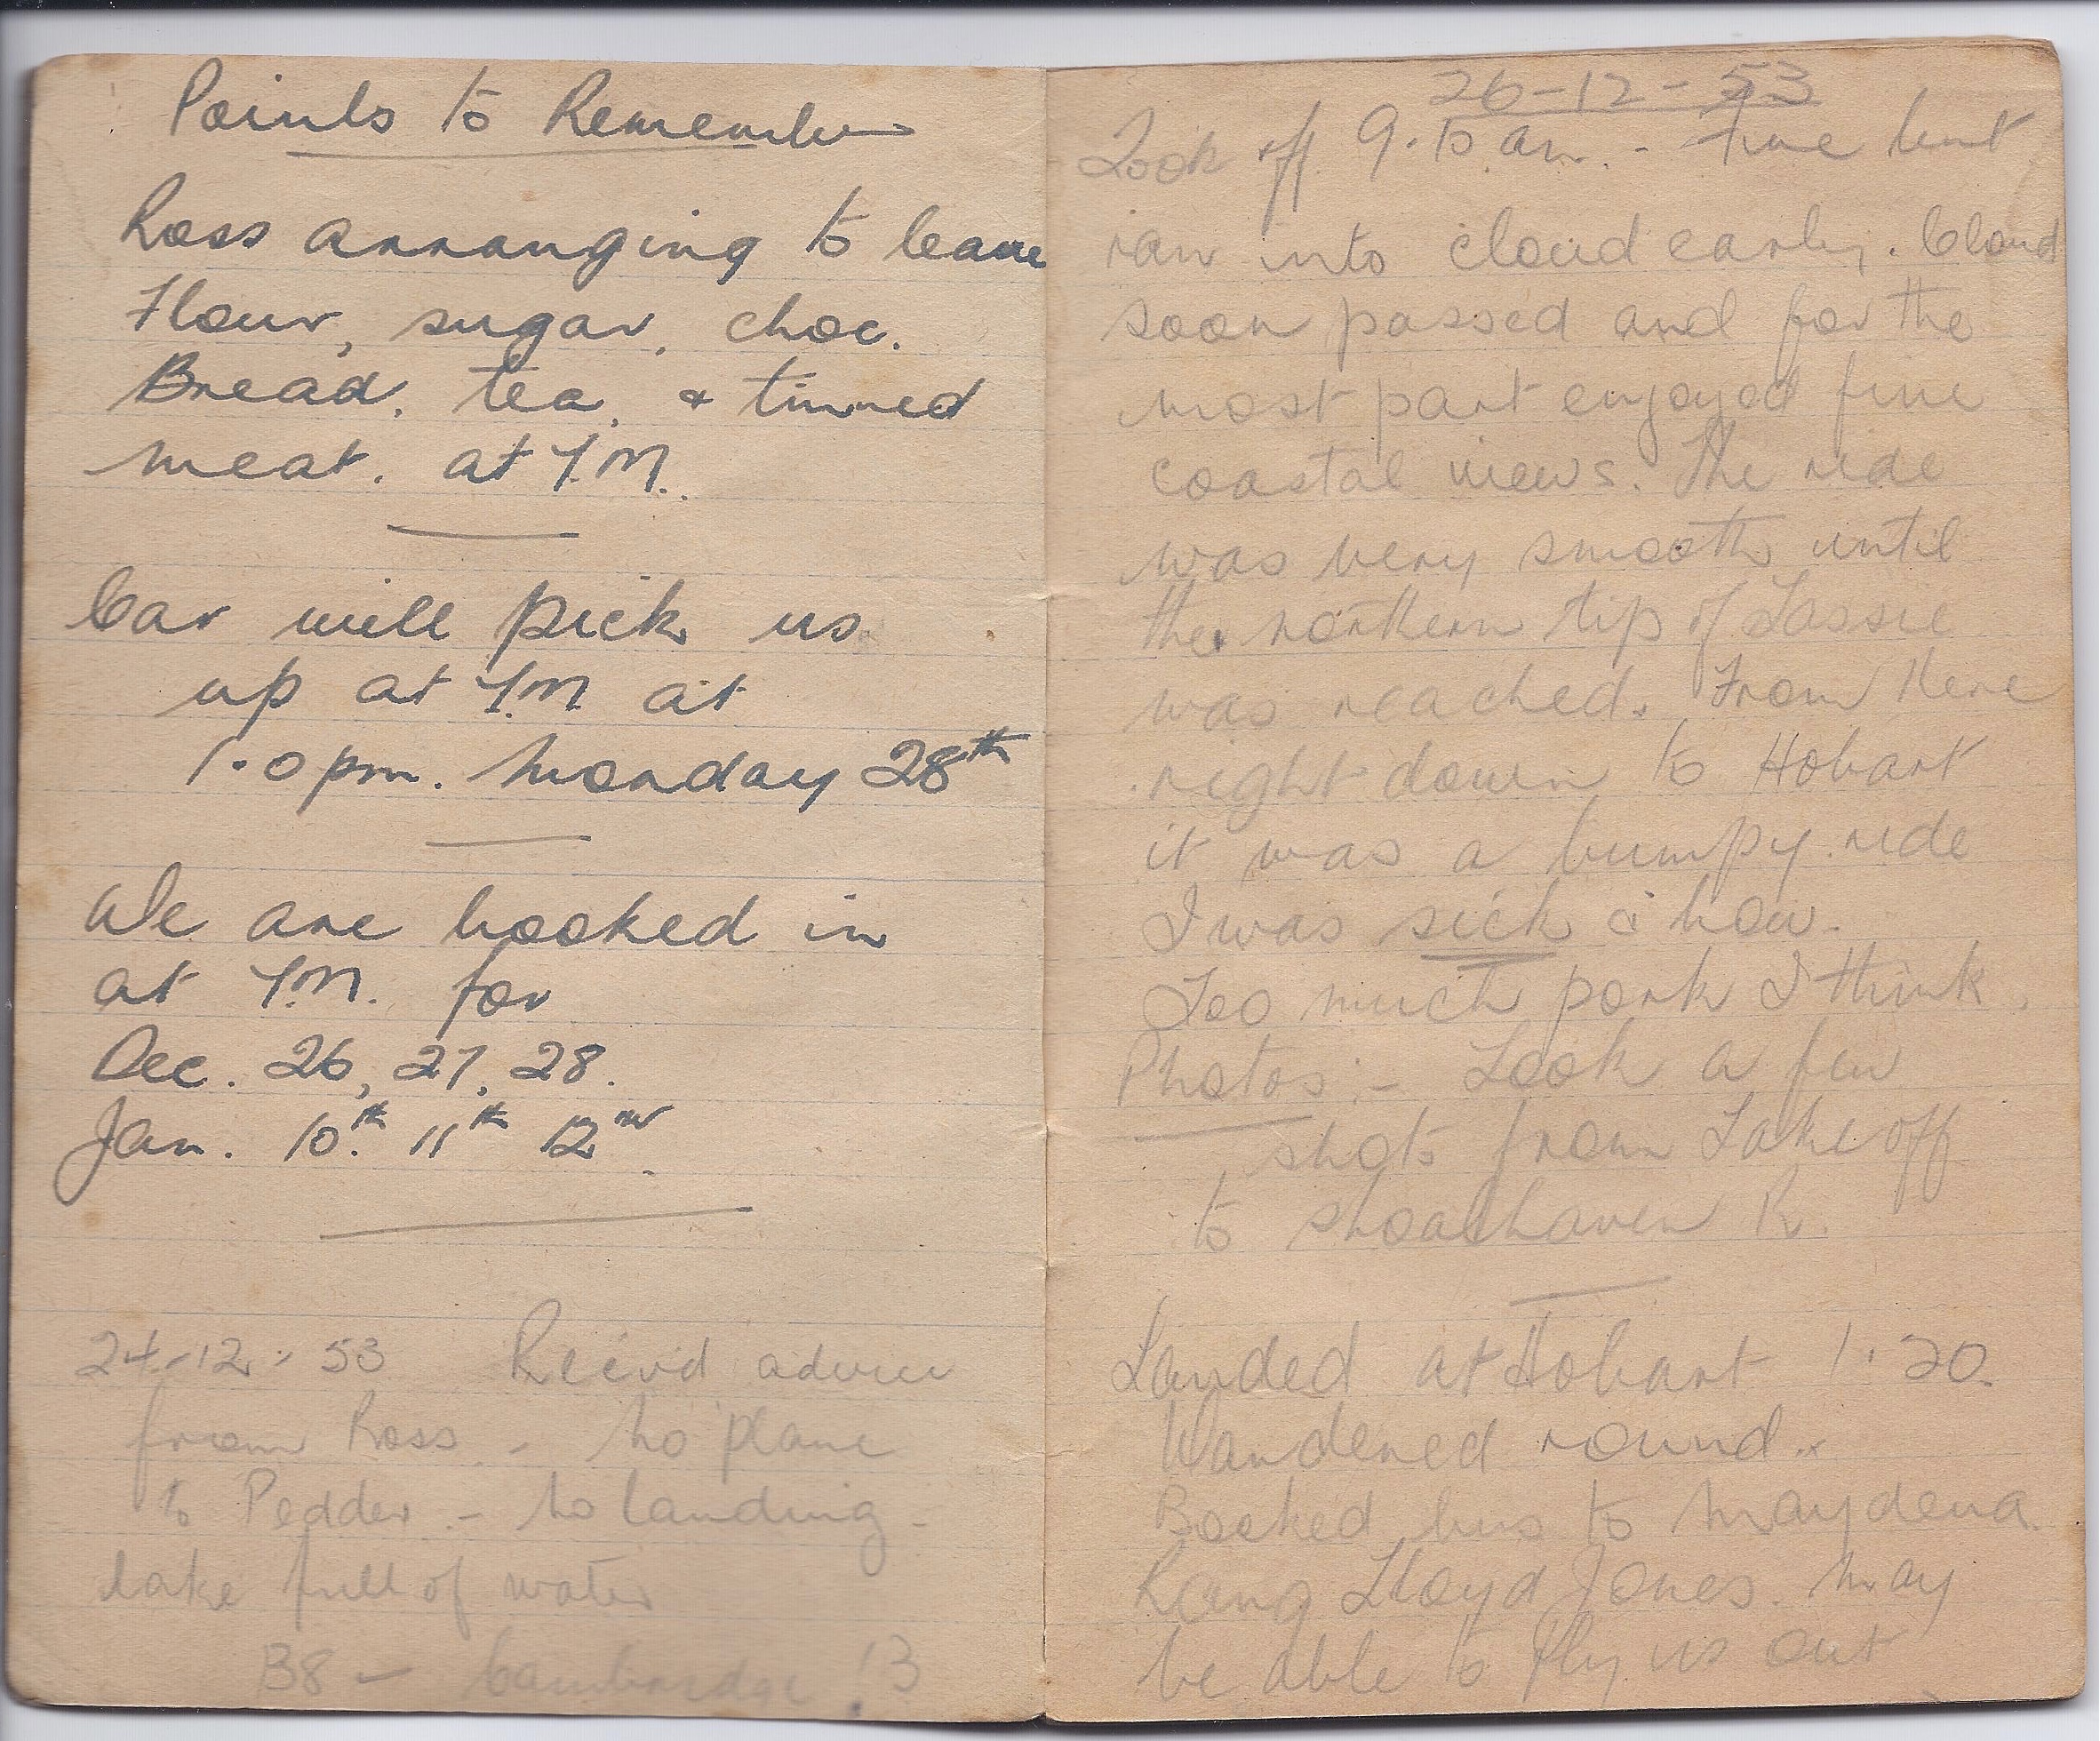 Points to Remember
Ross arranging to leave
Flour, sugar, choc.
Bread, tea, & tinned
meat. at Y.M.
Car will pick us
up at Y.M at
1.0 pm. Monday 28th
We are booked in
at Y.M. for
Dec. 26, 27, 28.
Jan. 10th 11th 12nd
24-12-53 Reciv'd advice
from Ross - No plane
to Pedder - No landing -
lake full of water
B8 - Cambridge
26-12-53
Took off 9.10 am. - Fine but
ran into cloud early. Cloud
soon passed and for the
most part enjoyed fine
coastal views. The ride
was very smooth until
the northern tip of Tassie
was reached. From there
right down to Hobart
it was a bumpy ride
I was sick & how.
Too much pork I think.
Photos :- Took a few
shots from Take off
to Shoalhaven R.
Landed at Hobart 1.20.
Wandered round.
Booked bus to Maydena.
Rang Lloyd Jones. May
be able to fly us out